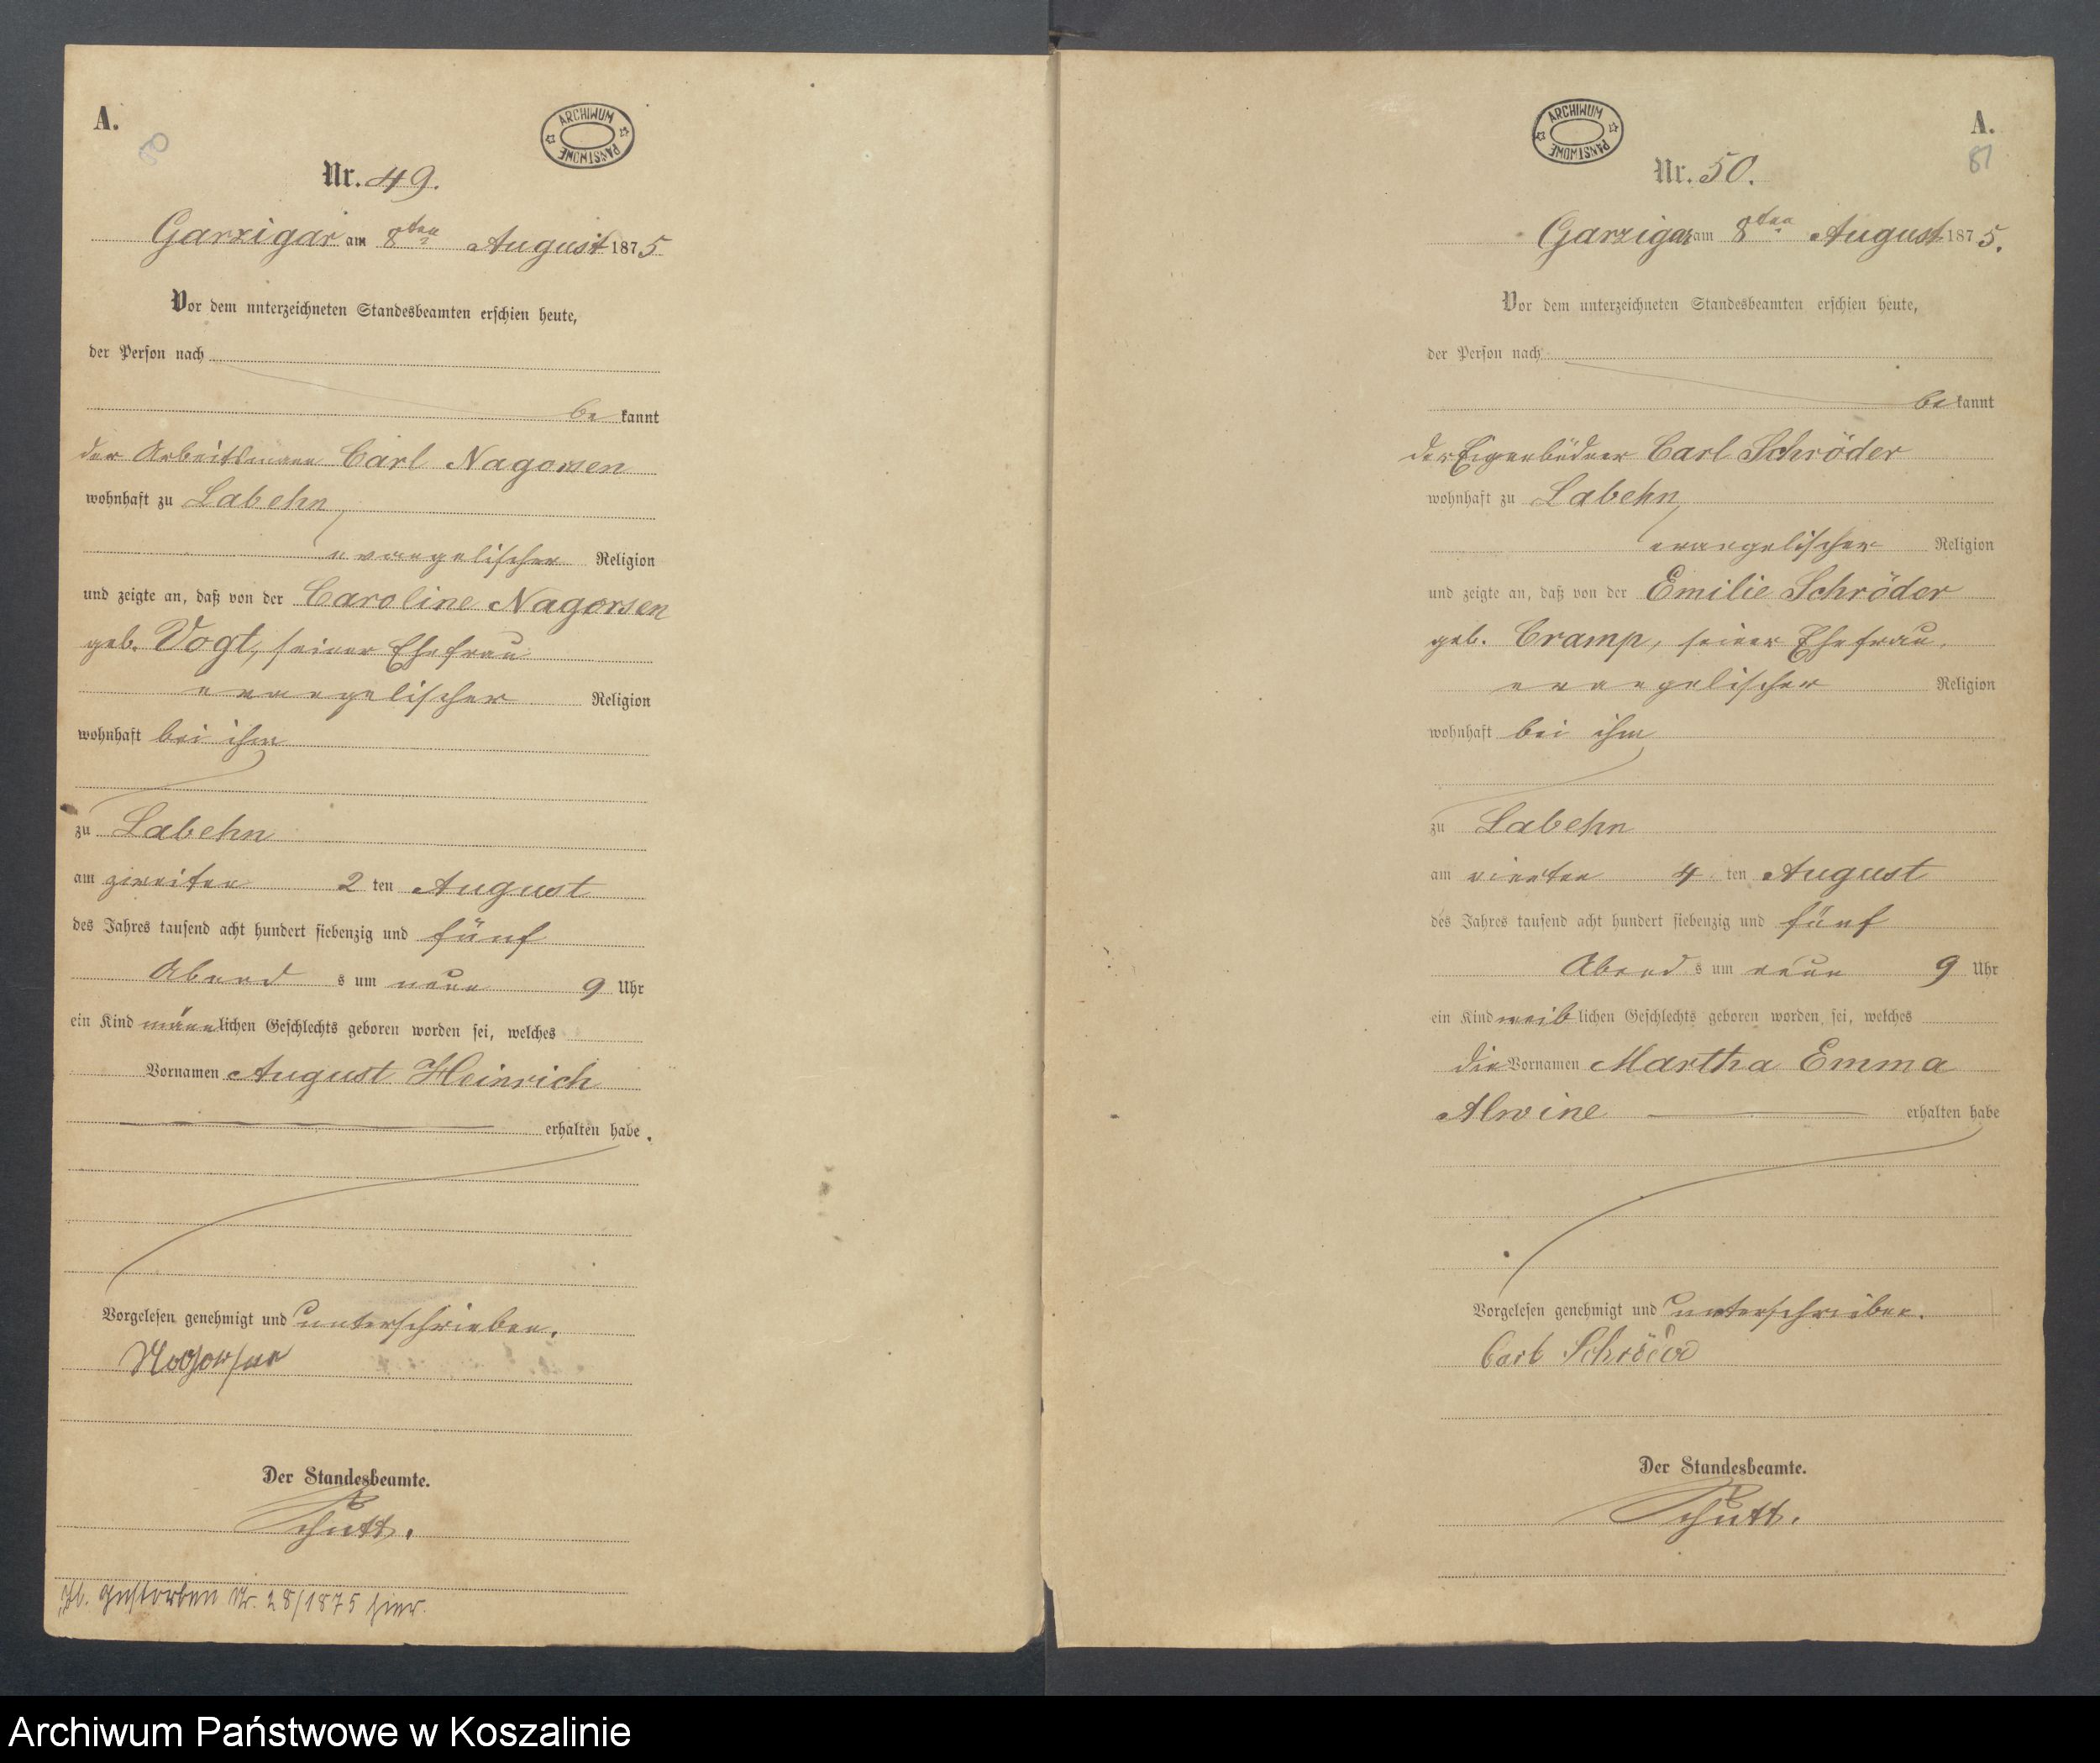 A.
80
ARCHIWUM PAŃSTWOWE
Nr. 49.
Garzigar am 8ten August 1875
Vor dem unterzeichneten Standesbeamten erschien heute,
der Person nach
be kannt
der Arbeitsmann Carl Nagorsen
wohnhaft zu Labehn,
evangelischer Religion
und zeigte an, daß von der Caroline Nagorsen
geb. Vogt, seiner Ehefrau
evangelischer Religion
wohnhaft bei ihm
zu Labehn
am zweiten 2 ten August
des Jahres tausend acht hundert siebenzig und fünf
Abend s um neun 9 Uhr
ein Kind männlichen Geschlechts geboren worden sei, welches
Vornamen August Heinrich
erhalten habe.
Vorgelesen genehmigt und unterschrieben.
Nagorsen
Der Standesbeamte.
Schütt.
gestorben Nr. 28/1875 hier.
ARCHIWUM PAŃSTWOWE
A.
81
Nr. 50.
Garzigar am 8ten August 1875.
Vor dem unterzeichneten Standesbeamten erschien heute,
der Person nach
be kannt
der Eigenbüdner Carl Schröder
wohnhaft zu Labehn,
evangelischer Religion
und zeigte an, daß von der Emilie Schröder
geb. Cramp, seiner Ehefrau,
evangelischer Religion
wohnhaft bei ihm
zu Labehn
am vierten 4. ten August
des Jahres tausend acht hundert siebenzig und fünf
Abend s um neun 9 Uhr
ein Kind weiblichen Geschlechts geboren worden sei, welches
die Vornamen Martha Emma
Alwine erhalten habe
Vorgelesen genehmigt und unterschrieben.
Carl Schröder
Der Standesbeamte.
Schütt.
Archiwum Państwowe w Koszalinie